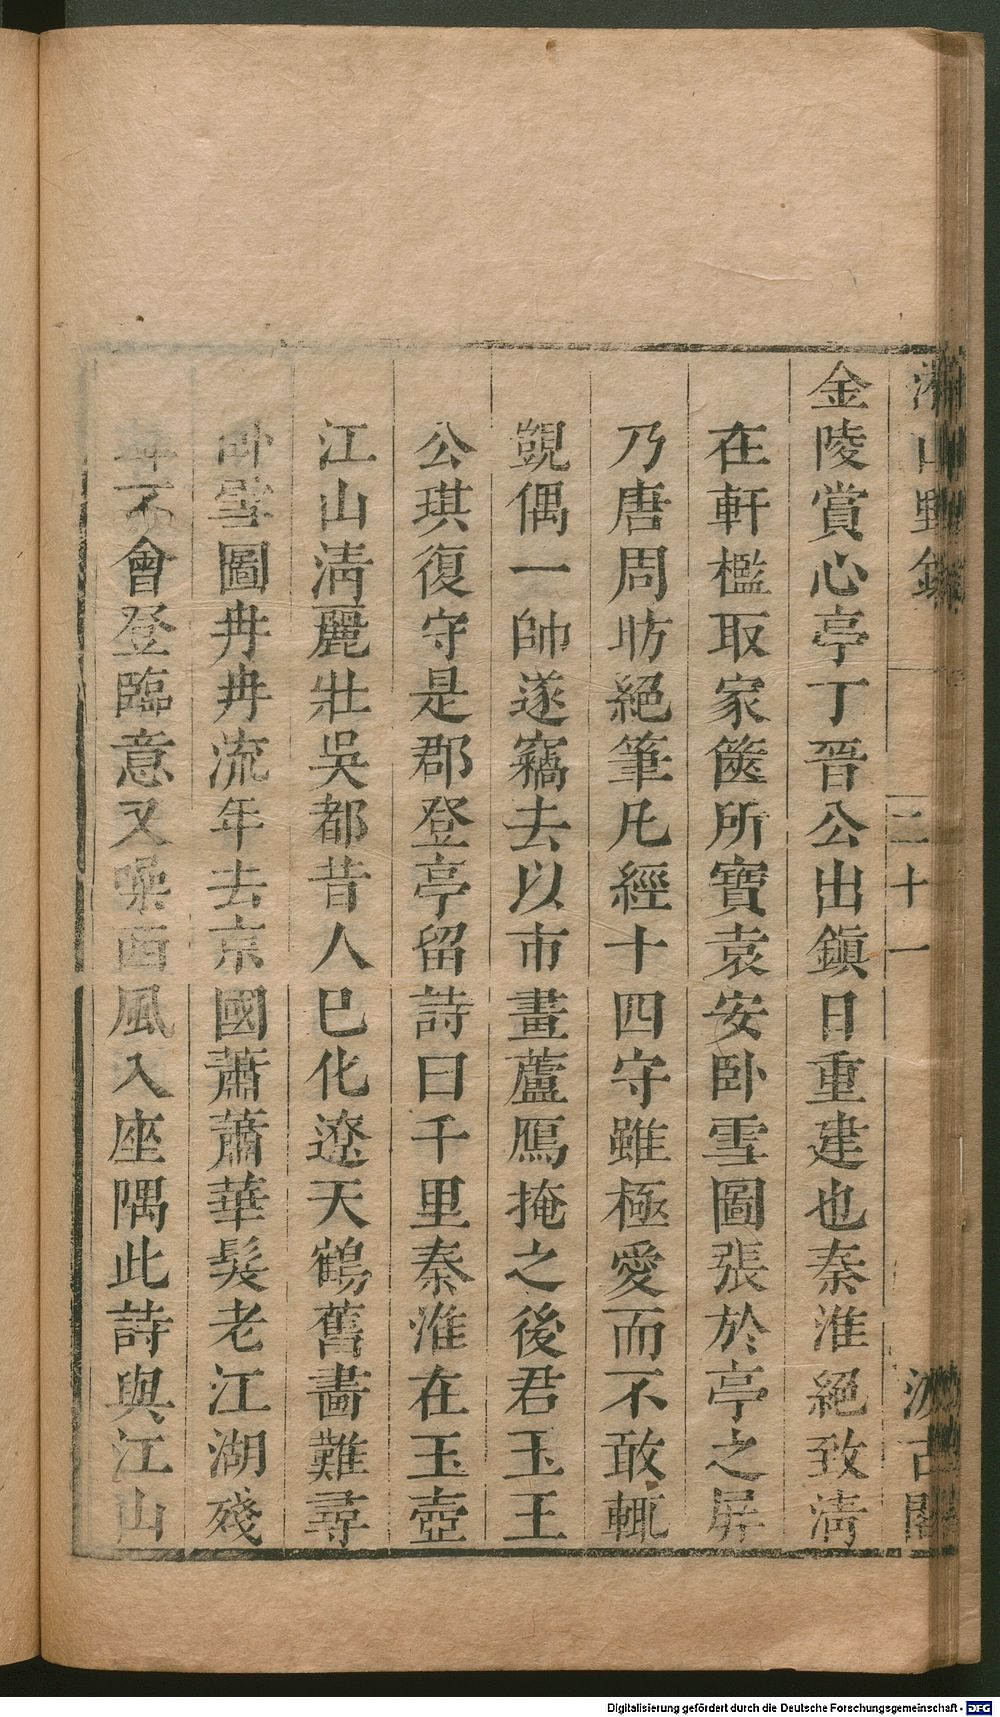 湘山野錄 二十一 汲古閣
金陵賞心亭丁晉公出鎮日重建也秦淮絕致清
在軒檻取家篋所寶袁安卧雪圖張於亭之屏
乃唐周昉絕筆凡經十四守雖極愛而不敢輒
覬偶一帥遂竊去以市畫蘆鴈掩之後君玉王
公琪復守是郡登亭留詩曰千里秦淮在玉壺
江山清麗壯吳都昔人巳化遼天鶴舊畫難尋
卧雪圖冉冉流年去京國蕭蕭華髮老江湖殘
蟬不會登臨意又噪西風入座隅此詩與江山
Digitalisierung gefördert durch die Deutsche Forschungsgemeinschaft - DFG